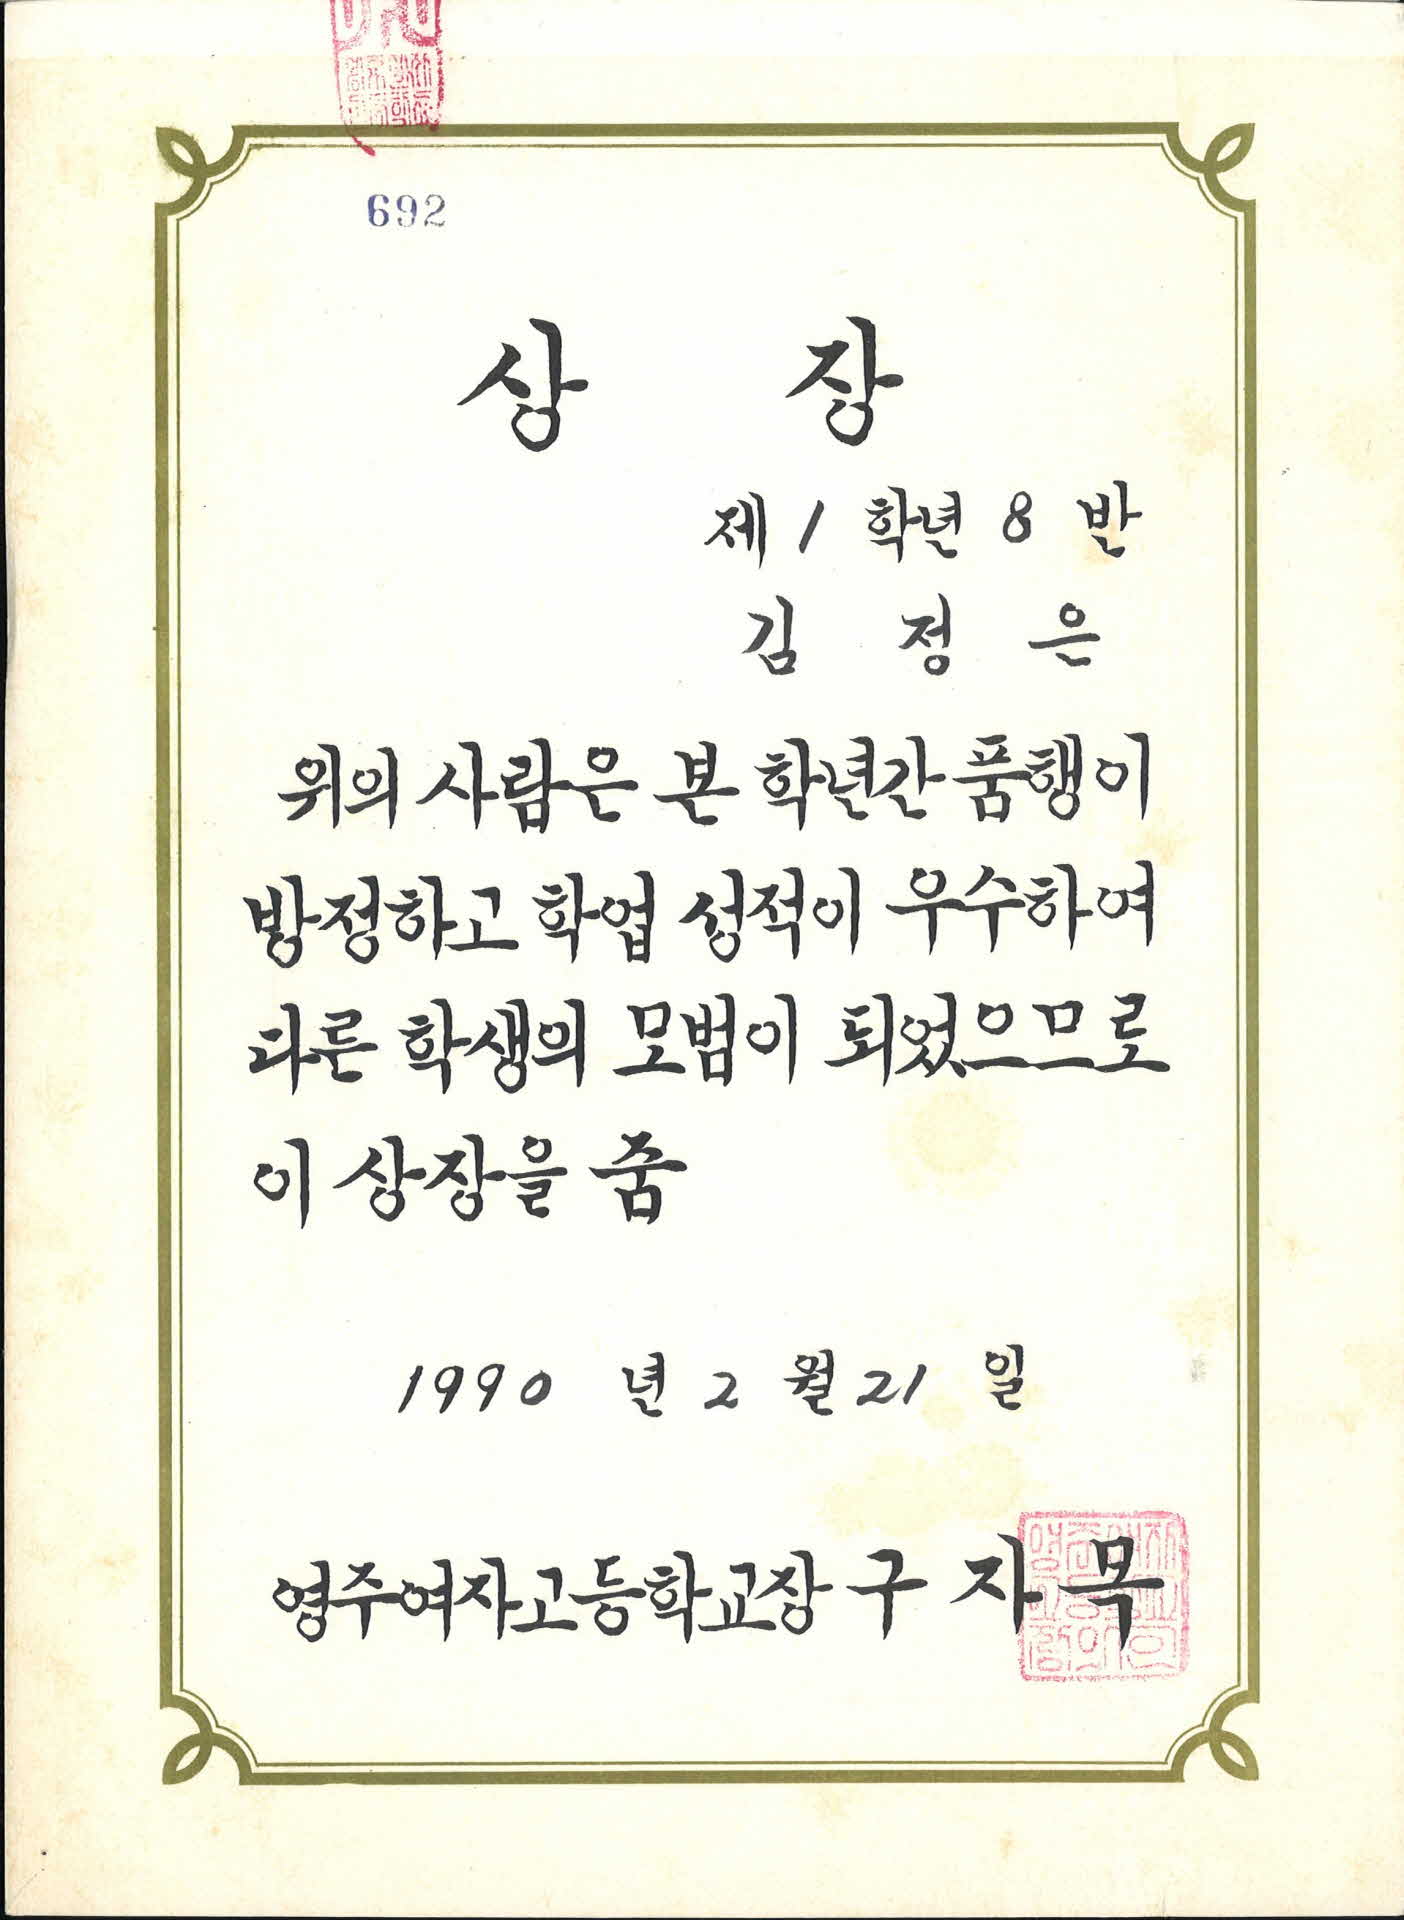 692
상 장
제 1 학년 8 반
김 정 은
위의 사람은 본 학년간 품행이
방정하고 학업 성적이 우수하여
다른 학생의 모범이 되었으므로
이 상장을 줌
1990 년 2 월 21 일
영주여자고등학교장 구 자 목